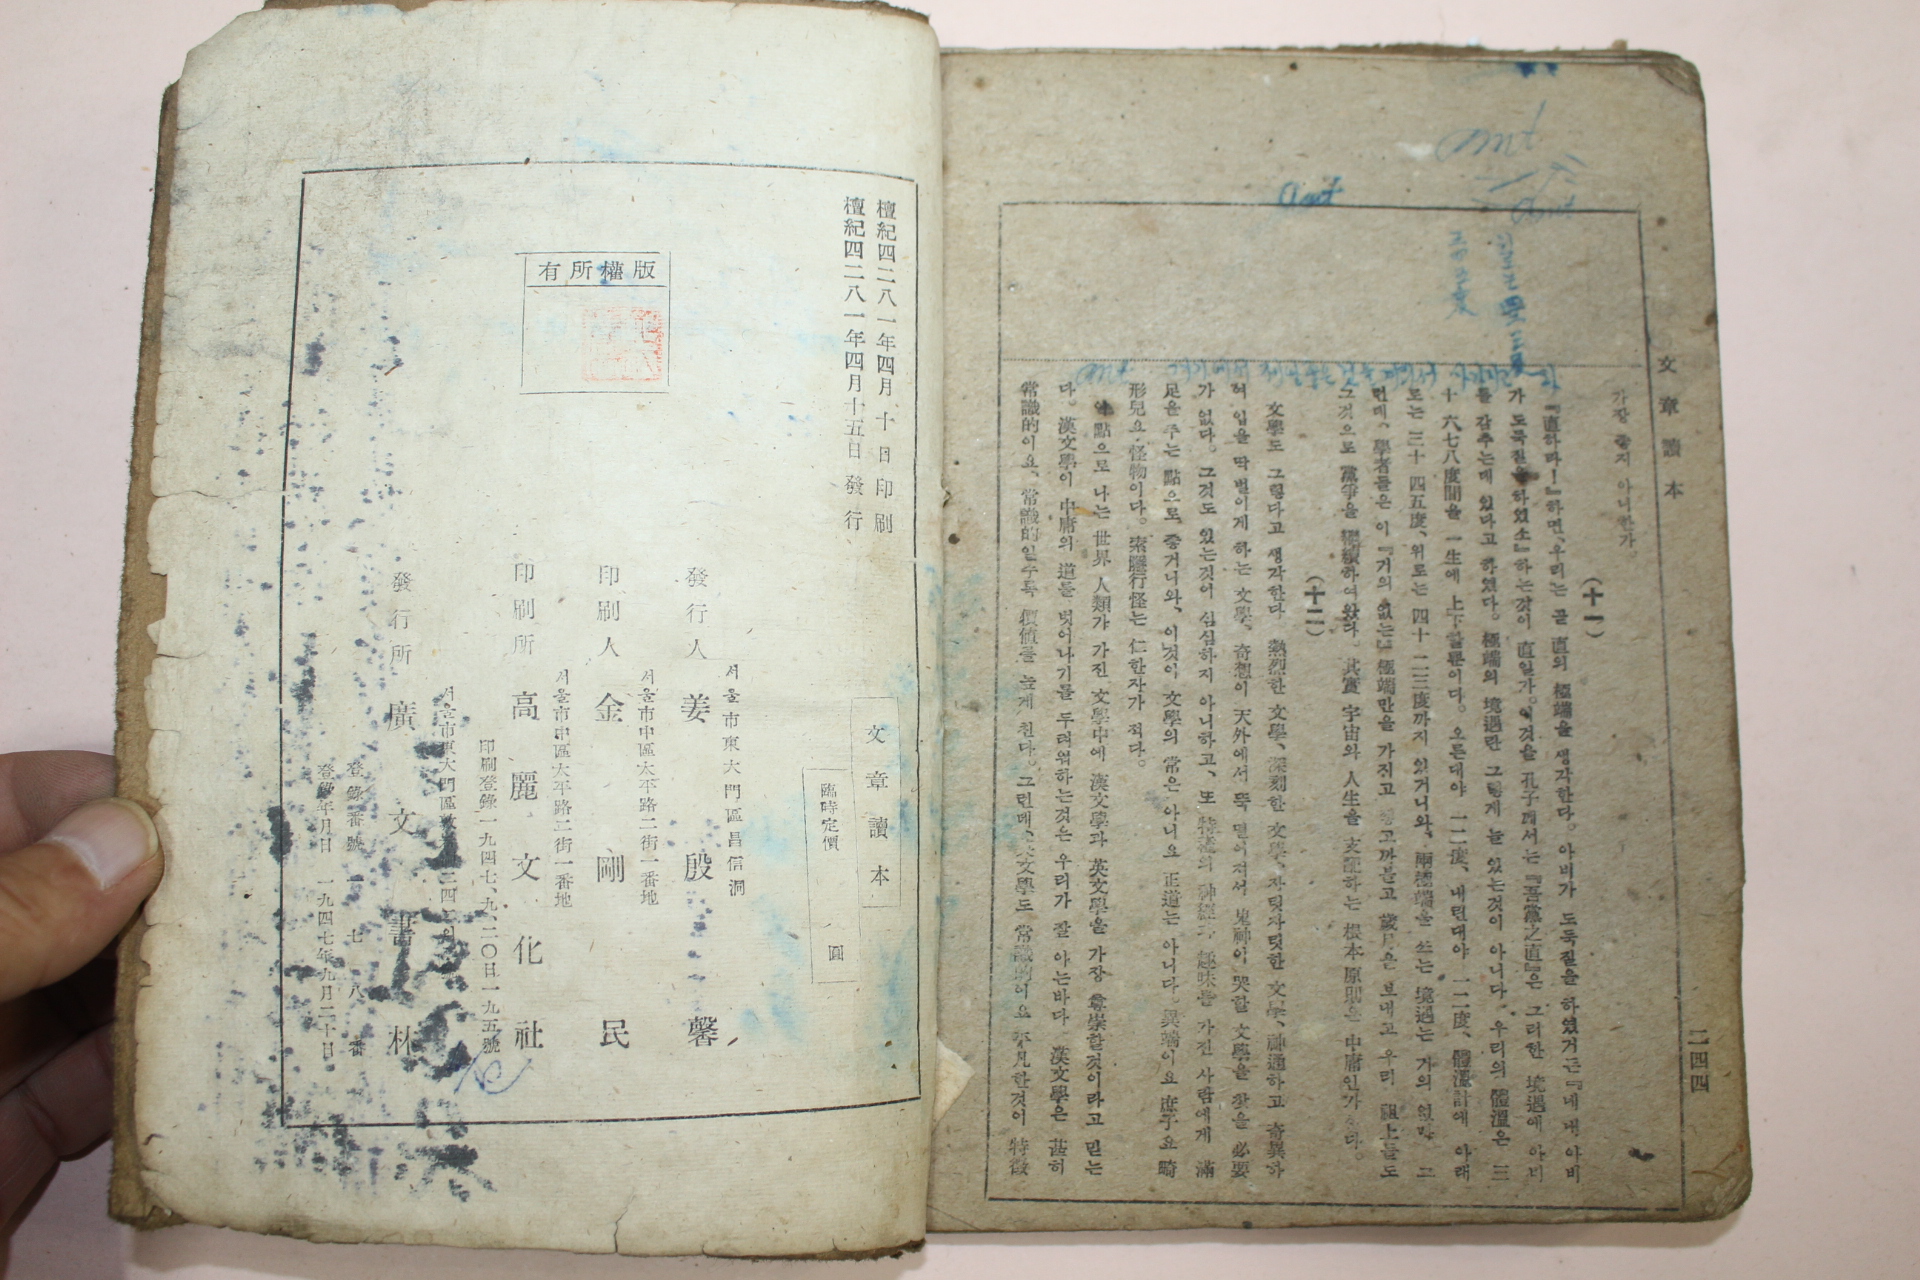 文章讀本
二四四
가장 좋지 아니한가.
(十一)
『直하라!』하면, 우리는 곧 直의 極端을 생각한다. 아비가 도둑질을 하였거든『네 내 아비
가 도둑질을 하였소』하는것이 直일가. 이것을 孔子께서는『吾黨之直』은 그러한 境遇에 아비
를 감추는데 있다고 하였다. 極端의 境遇란 그렇게 늘 있는것이 아니다. 우리의 體溫은 三
十 六七八度間을 一生에 上下할뿐이다. 오른대야 一二度, 내린대야 一二度, 體溫計에 아래
로는 三十 四五度、위로는 四十 一二三度까지 있거니와, 兩極端을 쓰는 境遇는 거의 없다. 그
런데, 學者들은 이『거의 없는』極端만을 가지고 歲月을 보내고 우리 祖上들도
그것으로 黨爭을 繼續하여왔다. 其實 宇宙와 人生을 支配하는 根本原則은 中庸인가 한다.
(十二)
文學도 그렇다고 생각한다. 熱烈한 文學、深刻한 文學、자릿자릿한 文學、神通하고 奇異하
여 입을 딱 벌이게 하는 文學、奇想이 天外에서 뚝 떨어져서 鬼神이 哭할 文學을 찾을 必要
가 없다. 그것도 있는것이 심심하지 아니하고、또 特殊의 神經과 趣味를 가진 사람에게 滿
足을 주는 點으로 좋거니와、이것이 文學의 常은 아니요 正道는 아니다. 異端이요 庶子요 畸
形兒요 怪物이다. 索隱行怪는 仁한자가 적다.
이 點으로 나는 世界 人類가 가진 文學中에 漢文學과 英文學을 가장 尊崇할것이라고 믿는
다. 漢文學이 中庸의 道를 벗어나기를 두려워하는것은 우리가 잘 아는바다. 漢文學은 甚히
常識的이요、常識的일수록 價値를 높게 친다. 그런데、英文學도 常識的이요 平凡한것이 特徵
檀紀四二八一年四月十日印刷
檀紀四二八一年四月十五日發行
文章讀本
臨時定價 圓
版權所有
서울市東大門區昌信洞
發行人 姜殷馨
서울市中區太平路二街一番地
印刷人 金剛民
서울市中區太平路二街一番地
印刷所 高麗文化社
印刷登錄一九四七、九、二〇日一九五號
發行所 廣文書林
登錄番號 一七八番
登錄年月日 一九四七年九月二十日